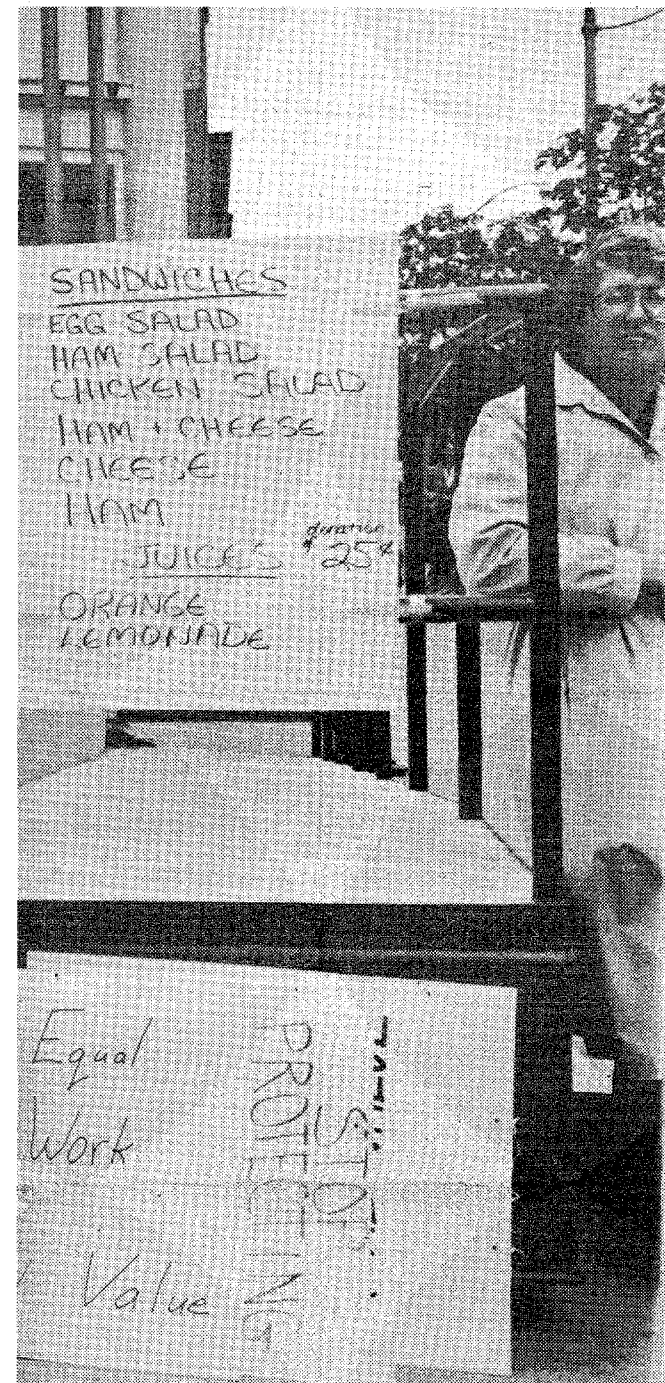 SANDWICHES
EGG SALAD
HAM SALAD
CHICKEN SALAD
HAM + CHEESE
CHEESE
HAM
JUICES
donation
$ 25¢
ORANGE
LEMONADE
Equal
Work
Value
STOP
PROTECTING